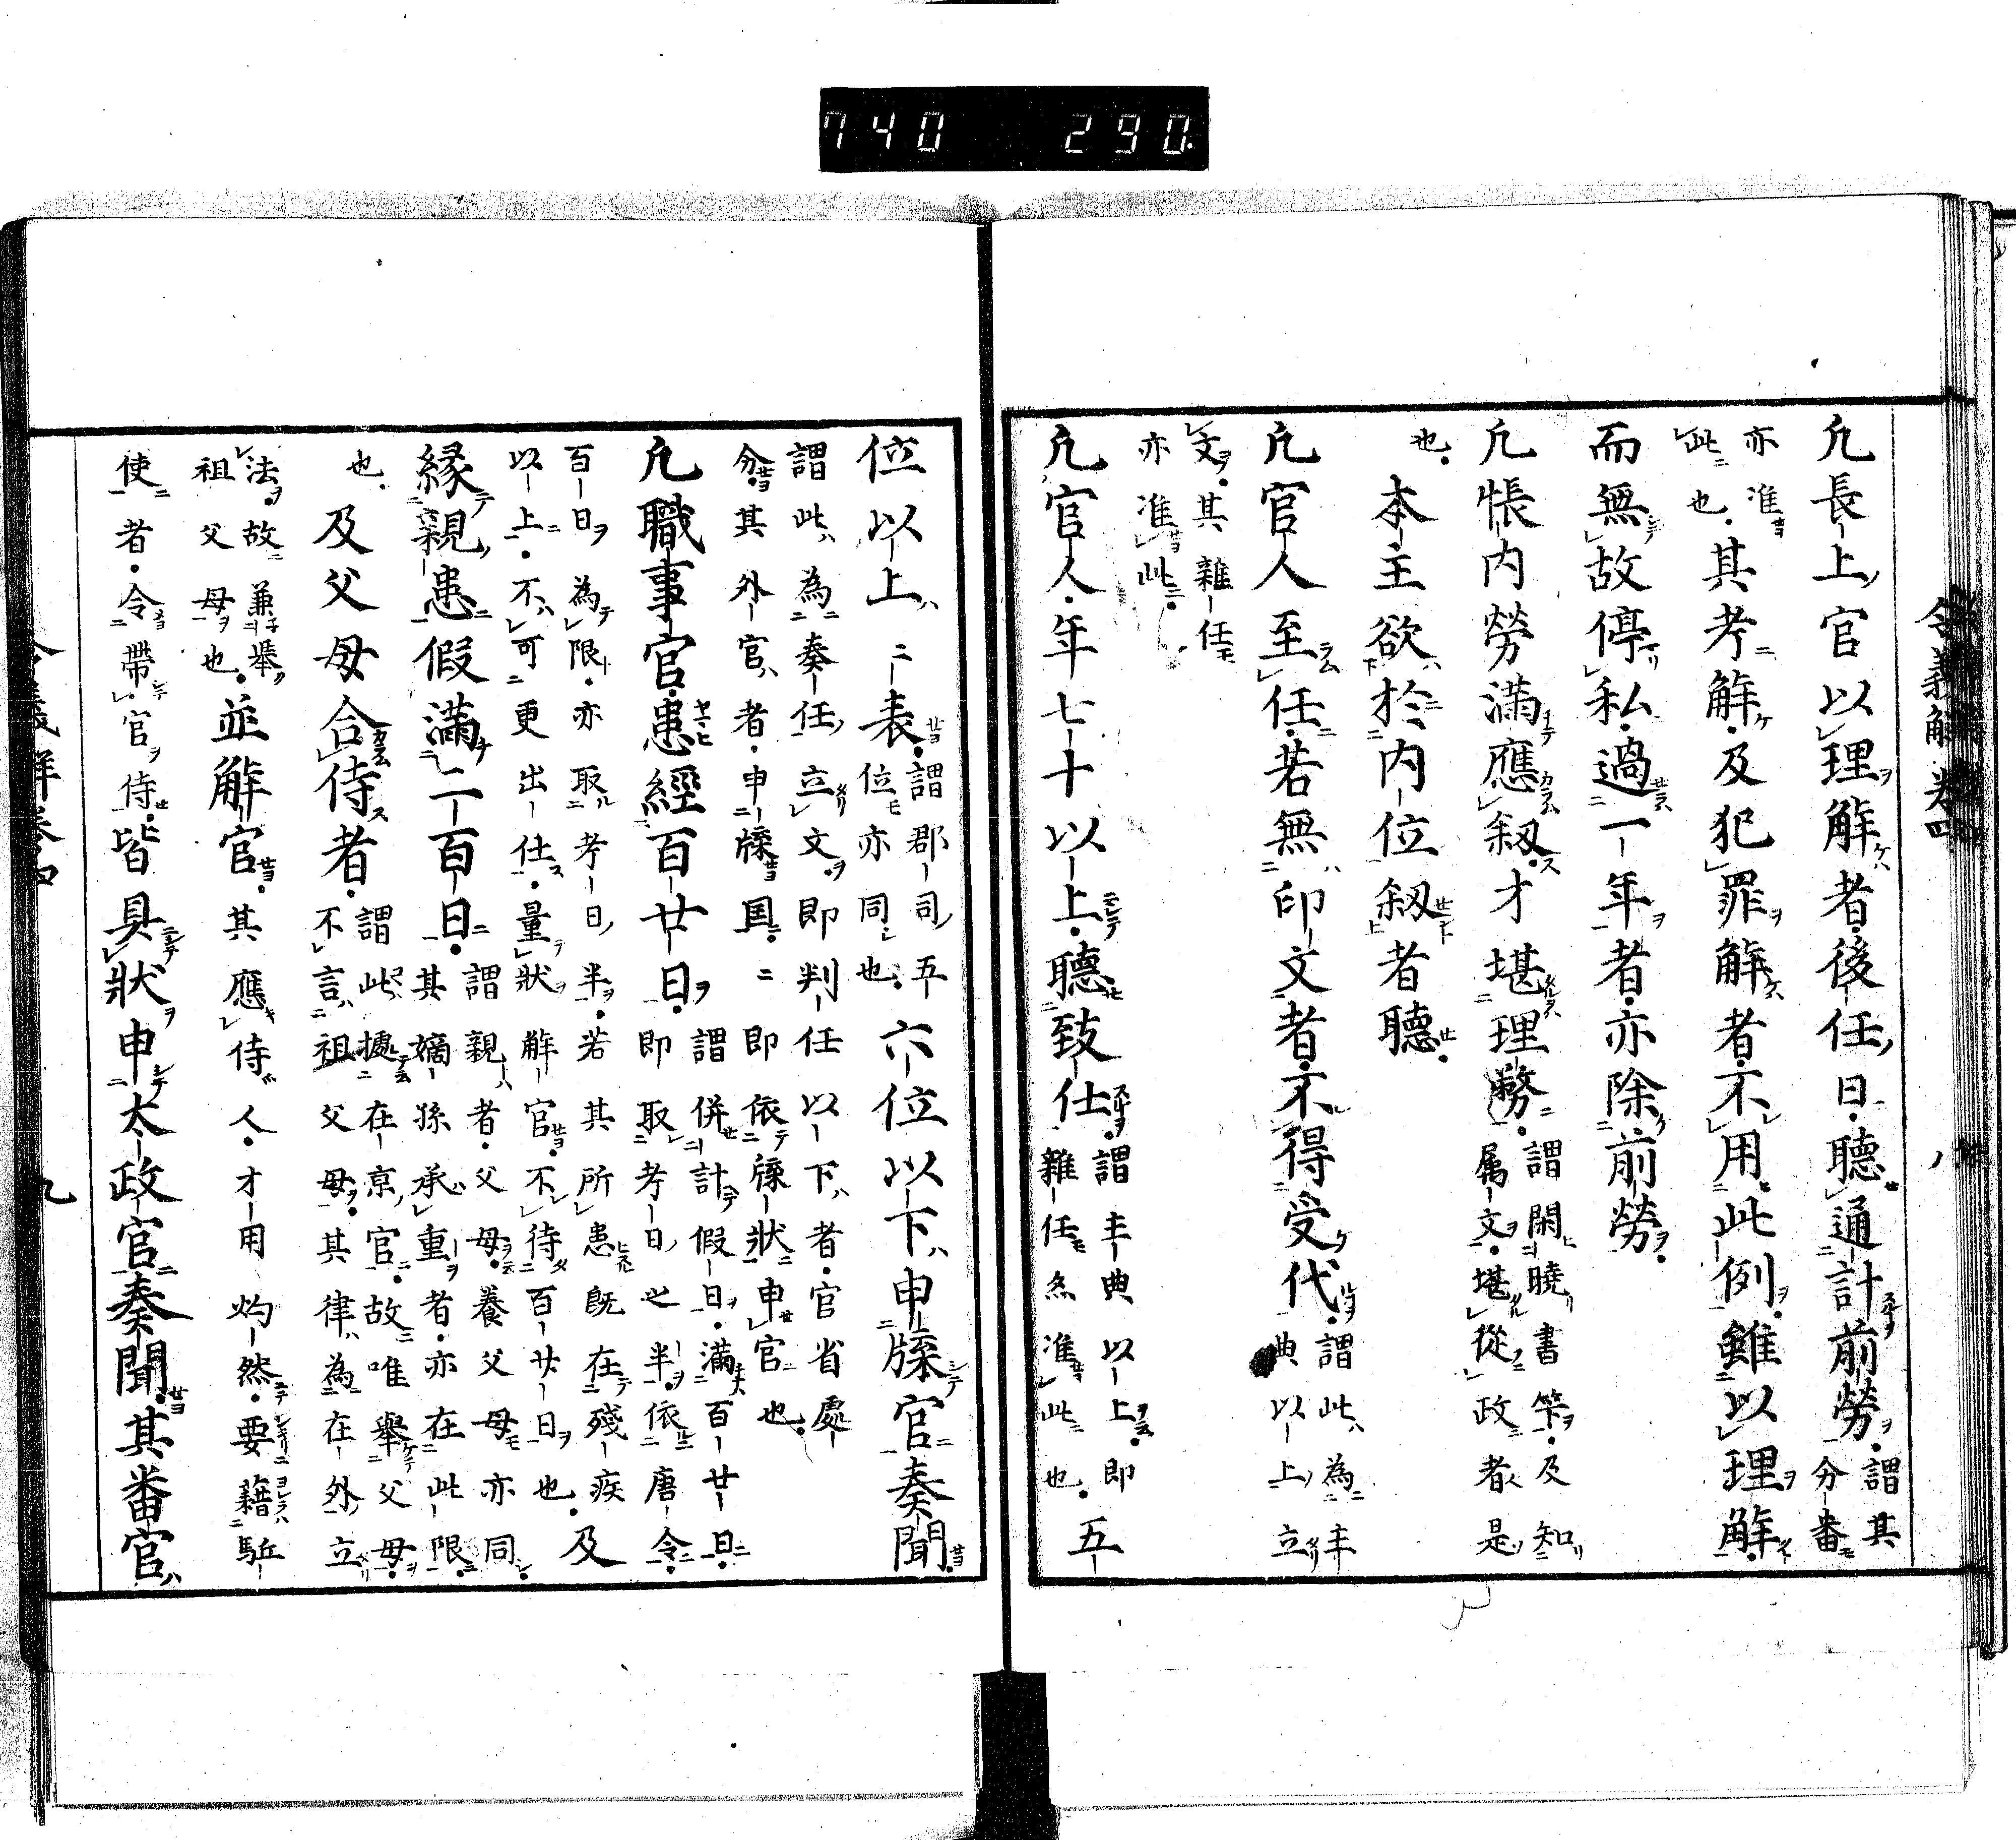 740 290
令義解卷四 八
凡長上官以理解者後任日聽通計前勞謂其分番
亦准此也其考解及犯罪解者不用此例雖以理解
而無故停私過一年者亦除前勞
凡帳内勞滿應叙才堪理務謂閑曉書筭及知属文堪從政者是
也本主欲於内位叙者聽
凡官人至任若無印文者不得受代謂此為主典以上立
文其雜任亦准此
凡官人年七十以上聽致仕謂主典以上即雜任亦准此也五
位以上上表謂郡司五位亦同也六位以下申牒官奏聞
謂此為奏任立文即判任以下者官省處分其外官者申牒国国即依牒状申官也
凡職事官患經百廿日謂併計假日滿百廿日即取考日之半依唐令
百日為限亦取考日半若其所患既在殘疾以上不可更出仕量状解官不待百廿日也及
緣親患假滿二百日謂親者父母養父母亦同其嫡孫承重者亦在此限
也及父母合侍者謂此據在京官故唯舉父母不言祖父母其律為在外立
法故兼舉祖父母也並解官其應侍人才用灼然要藉駈
使者令帶官侍皆具狀申太政官奏聞其番官
令義解卷四 九